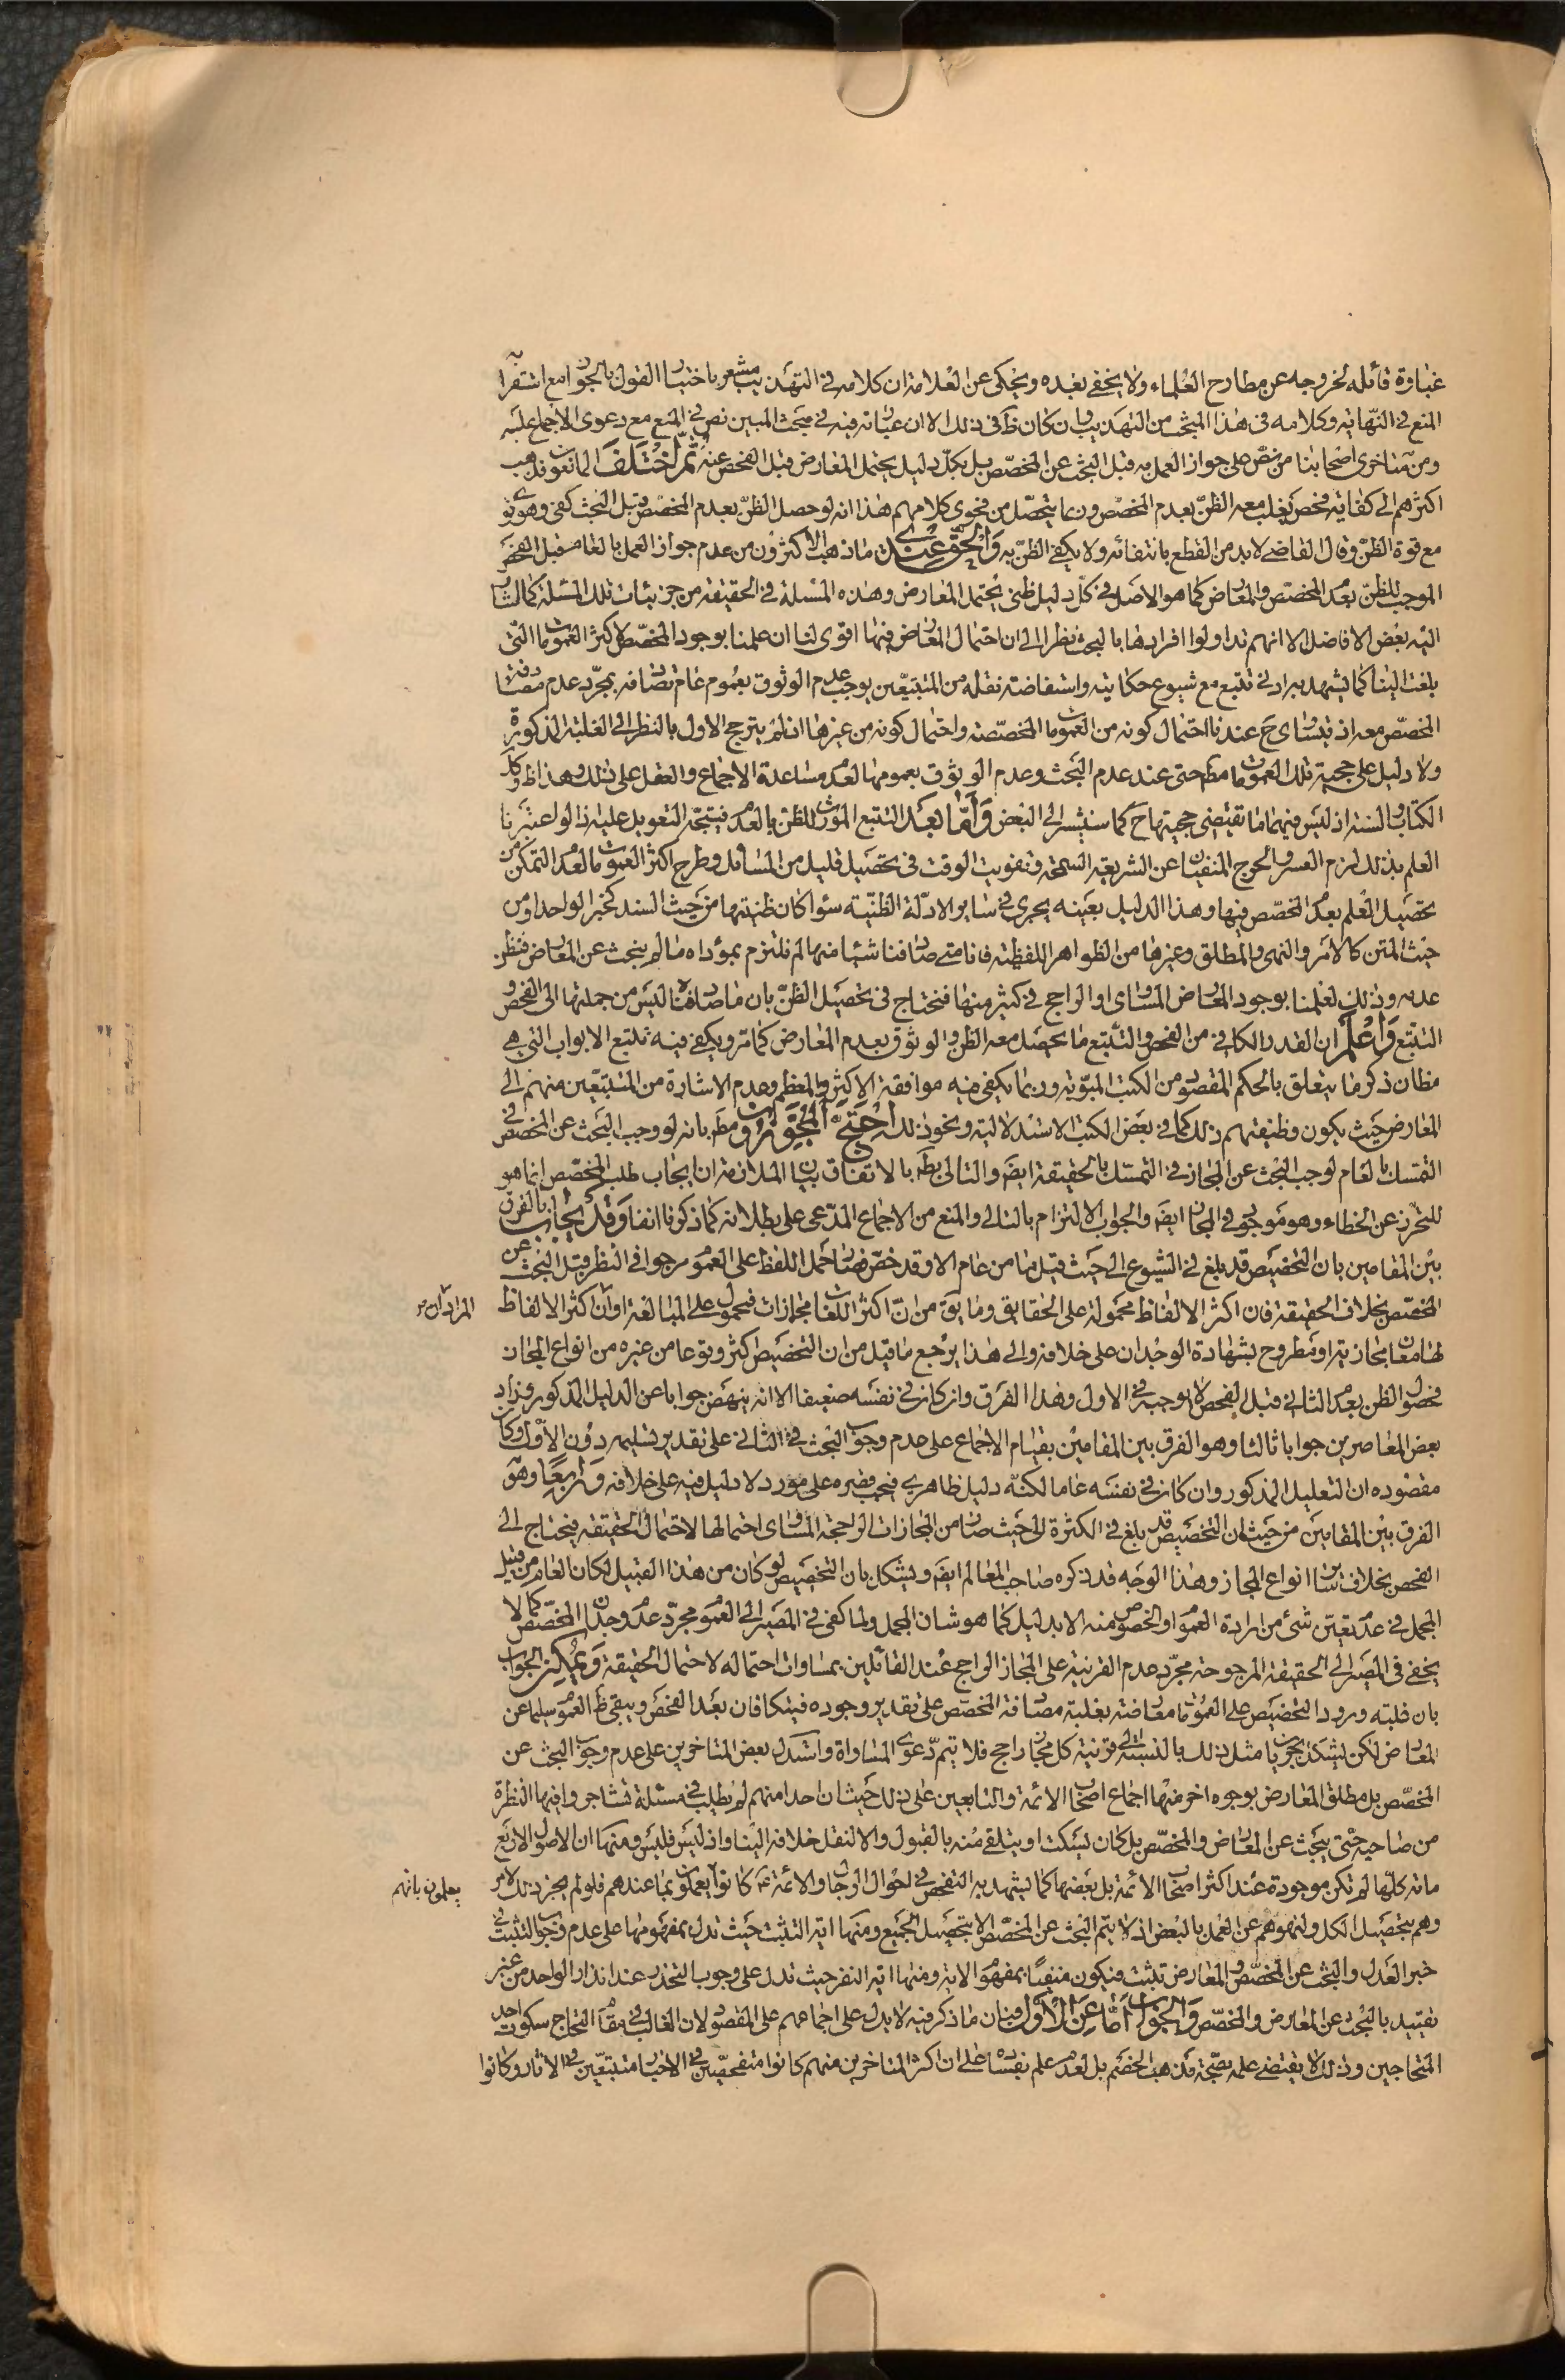 غباوة قائله لخروجه عن مطارح العلماء ولا يخفى بعده ويحكى عن العلامة ان كلامه فى التهذيب مشعر باختيار القول بالجواز مع استقرابه
المنع فى النهاية وكلامه فى هذا المبحث من التهذيب وان كان ظ فى ذلك الا ان عبارته فيه فى مبحث المبين نص فى المنع مع دعوى الاجماع عليه
ومن متاخرى اصحابنا من نص على جواز العمل به قبل البحث عن المخصص بل بكل دليل يحتمل المعارض قبل الفحص عنه ثم اختلف المانعون فذهب
اكثرهم الى كفاية فحص يغلب معه الظن بعدم المخصص وربما يتحصل من فحوى كلامهم هذا انه لو حصل الظن بعدم المخصص قبل البحث كفى وهو
مع قوة الظن وقال القاضى لا بد من القطع بانتفائه ولا يكفى الظن به والحق عندى ما ذهب اليه الاكثرون من عدم جواز العمل بالعام قبل الفحص
الموجب للظن بعدم المخصص والمعارض كما هو الاصل فى كل دليل ظنى يحتمل المعارض وهذه المسئلة فى الحقيقة من جزئيات تلك المسئلة كما اشار
اليه بعض الافاضل الا انهم تداولوا افرادها بالبحث نظرا الى ان احتمال المعارض فيها اقوى لنا ان علمنا بوجود المخصص لاكثر العمومات التى
بلغت الينا كما يشهد به ادنى تتبع مع شيوع حكايته واستفاضة نقله من المتتبعين يوجب عدم الوثوق بعموم عام نصادفه بمجرد عدم مصادفة
المخصص معه اذ يتساوى ح عندنا احتمال كونه من العمومات المخصصة واحتمال كونه من غيرها ان لم يترجح الاول بالنظر الى الغلبة المذكورة
ولا دليل على حجية تلك العمومات مطلقا حتى عند عدم البحث وعدم الوثوق بعمومها لعدم مساعدة الاجماع والعقل على ذلك وهذا ظ وكذا
الكتاب والسنة اذ ليس فيهما ما تقتضى حجيتها ح كما سنشير الى البعض واما بعد التتبع المورث للظن بالعدم فيتجه التعويل عليه اذ لو اعتبرنا
العلم بذلك لزم العسر والحرج المنفيان عن الشريعة السمحة وتفويت الوقت فى تحصيل قليل من المسائل وطرح اكثر العمومات لعدم التمكن من
تحصيل العلم بعدم المخصص فيها وهذا الدليل بعينه يجرى فى ساير الادلة الظنية سواء كان ظنيتها من حيث السند كخبر الواحد او من
حيث المتن كالامر والنهى والمطلق وغيرها من الظواهر اللفظية فانا متى صادفنا شيئا منها لم نلتزم بمؤداه ما لم نبحث عن المعارض فنظن
عدمه وذلك لعلمنا بوجود المعارض المساوى او الراجح فى كثير منها فنحتاج فى تحصيل الظن بان ما صادفناه ليس من جملتها الى الفحص و
التتبع واعلم ان القدر الكافى من الفحص والتتبع ما يحصل معه الظن والوثوق بعدم المعارض كما مر ويكفى فيه تتبع الابواب التى هى
مظان ذكر ما يتعلق بالحكم المقصود من الكتب المبوبة وربما يكفى فيه موافقة الاكثر والمعظم وعدم الاشارة من المتتبعين منهم الى
المعارض حيث يكون وظيفتهم ذلك كما فى بعض الكتب الاستدلالية ونحو ذلك احتج المجوزون مط بانه لو وجب البحث عن المخصص فى
التمسك بالعام لوجب البحث عن المجاز فى التمسك بالحقيقة ايضا والتالى بط بالاتفاق بيان الملازمة ان ايجاب طلب المخصص انما هو
للتحرز عن الخطاء وهو موجود فى المجاز ايضا والجواب الالتزام بالتالى والمنع من الاجماع المدعى على بطلانه كما ذكرنا انفا وقد يجاب بالفرق
بين المقامين بان التخصيص قد بلغ فى الشيوع الى حيث قيل ما من عام الا وقد خص فصار حمل اللفظ على العموم مرجوحا فى النظر قبل البحث عن
المخصص بخلاف الحقيقة فان اكثر الالفاظ محمولة على الحقايق وما يق من ان اكثر اللغات مجازات فمحمول على المبالغة او ان اكثر الالفاظ
المراد ان
لها معان مجازية او مطروح بشهادة الوجدان على خلافه والى هذا يرجع ما قيل من ان التخصيص اكثر وقوعا من غيره من انواع المجاز
فحصول الظن بعدم الثانى قبل الفحص لا يوجبه فى الاول وهذا الفرق وان كان فى نفسه ضعيفا الا انه ينهض جوابا عن الدليل المذكور وزاد
بعض المعاصرين جوابا ثالثا وهو الفرق بين المقامين بقيام الاجماع على عدم وجوب البحث فى الثانى على تقدير تسليمه دون الاول وكان
مقصوده ان التعليل المذكور وان كان فى نفسه عاما لكنه دليل ظاهرى فيجب قصره على مورد لا دليل فيه على خلافه ورابعا وهو
الفرق بين المقامين من حيث ان التخصيص قد بلغ فى الكثرة الى حيث صار من المجازات الراجحة المساوى احتمالها لاحتمال الحقيقة فيحتاج الى
الفحص بخلاف ساير انواع المجاز وهذا الوجه قد ذكره صاحب المعالم ايضا ويشكل بان التخصيص لو كان من هذا القبيل لكان العام من قبيل
المجمل فى عدم تعين شئ من ارادة العموم او الخصوص منه الا بدليل كما هو شان المجمل ولما كفى فى المصير الى العموم مجرد عدم وجدان المخصص كما لا
يكفى فى المصير الى الحقيقة المرجوحة مجرد عدم القرينة على المجاز الراجح عند القائلين بمساوات احتماله لاحتمال الحقيقة ويمكن الجواب
بان غلبة ورود التخصيص على العمومات معارضة بغلبة مصادفة المخصص على تقدير وجوده فيتكافان بعد الفحص ويبقى ظ العموم سليما عن
المعارض لكن يشكل بجريان مثل ذلك بالنسبة الى قرينة كل مجاز راجح فلا يتم دعوى المساواة واستدل بعض المتاخرين على عدم وجوب البحث عن
المخصص بل مطلق المعارض بوجوه اخر منها اجماع اصحاب الائمة والتابعين على ذلك حيث ان احدا منهم لم يطلب فى مسئلة تشاجروا فيها النظرة
من صاحبه حتى يبحث عن المعارض والمخصص بل كان يسكت او يتلقى منه بالقبول والا لنقل خلافه الينا واذ ليس فليس ومنها ان الاصول الاربع
مائة كلها لم تكن موجودة عند اكثر اصحاب الائمة بل بعضها كما يشهد به التفحص فى احوال الرجال والائمة ع كانوا يعملون بما عندهم فلو لم يجز ذلك لامر
يعلمون بانهم
وهم بتحصيل الكل ولنهوهم عن العمل بالبعض اذ لا يتم البحث عن المخصص الا بتحصيل الجميع ومنها اية التثبت حيث تدل بمفهومها على عدم وجوب التثبت فى
خبر العدل والبحث عن المخصص والمعارض تثبت فيكون منفيا بمفهوم الاية ومنها اية النفر حيث تدل على وجوب التحذر عند انذار الواحد من غير
تقييد بالبحث عن المعارض والمخصص والجواب اما عن الاول فبان ما ذكر فيه لا يدل على اجماعهم على المقصود لان الغالب فى مقام التحاج سكوت احد
المتحاجين وذلك لا يقتضى علمه بصحة مذهب الخصم بل لعدم علمه بفساده على ان اكثر المتاخرين منهم كانوا متفحصين فى الاخبار متتبعين فى الاثار وكانوا